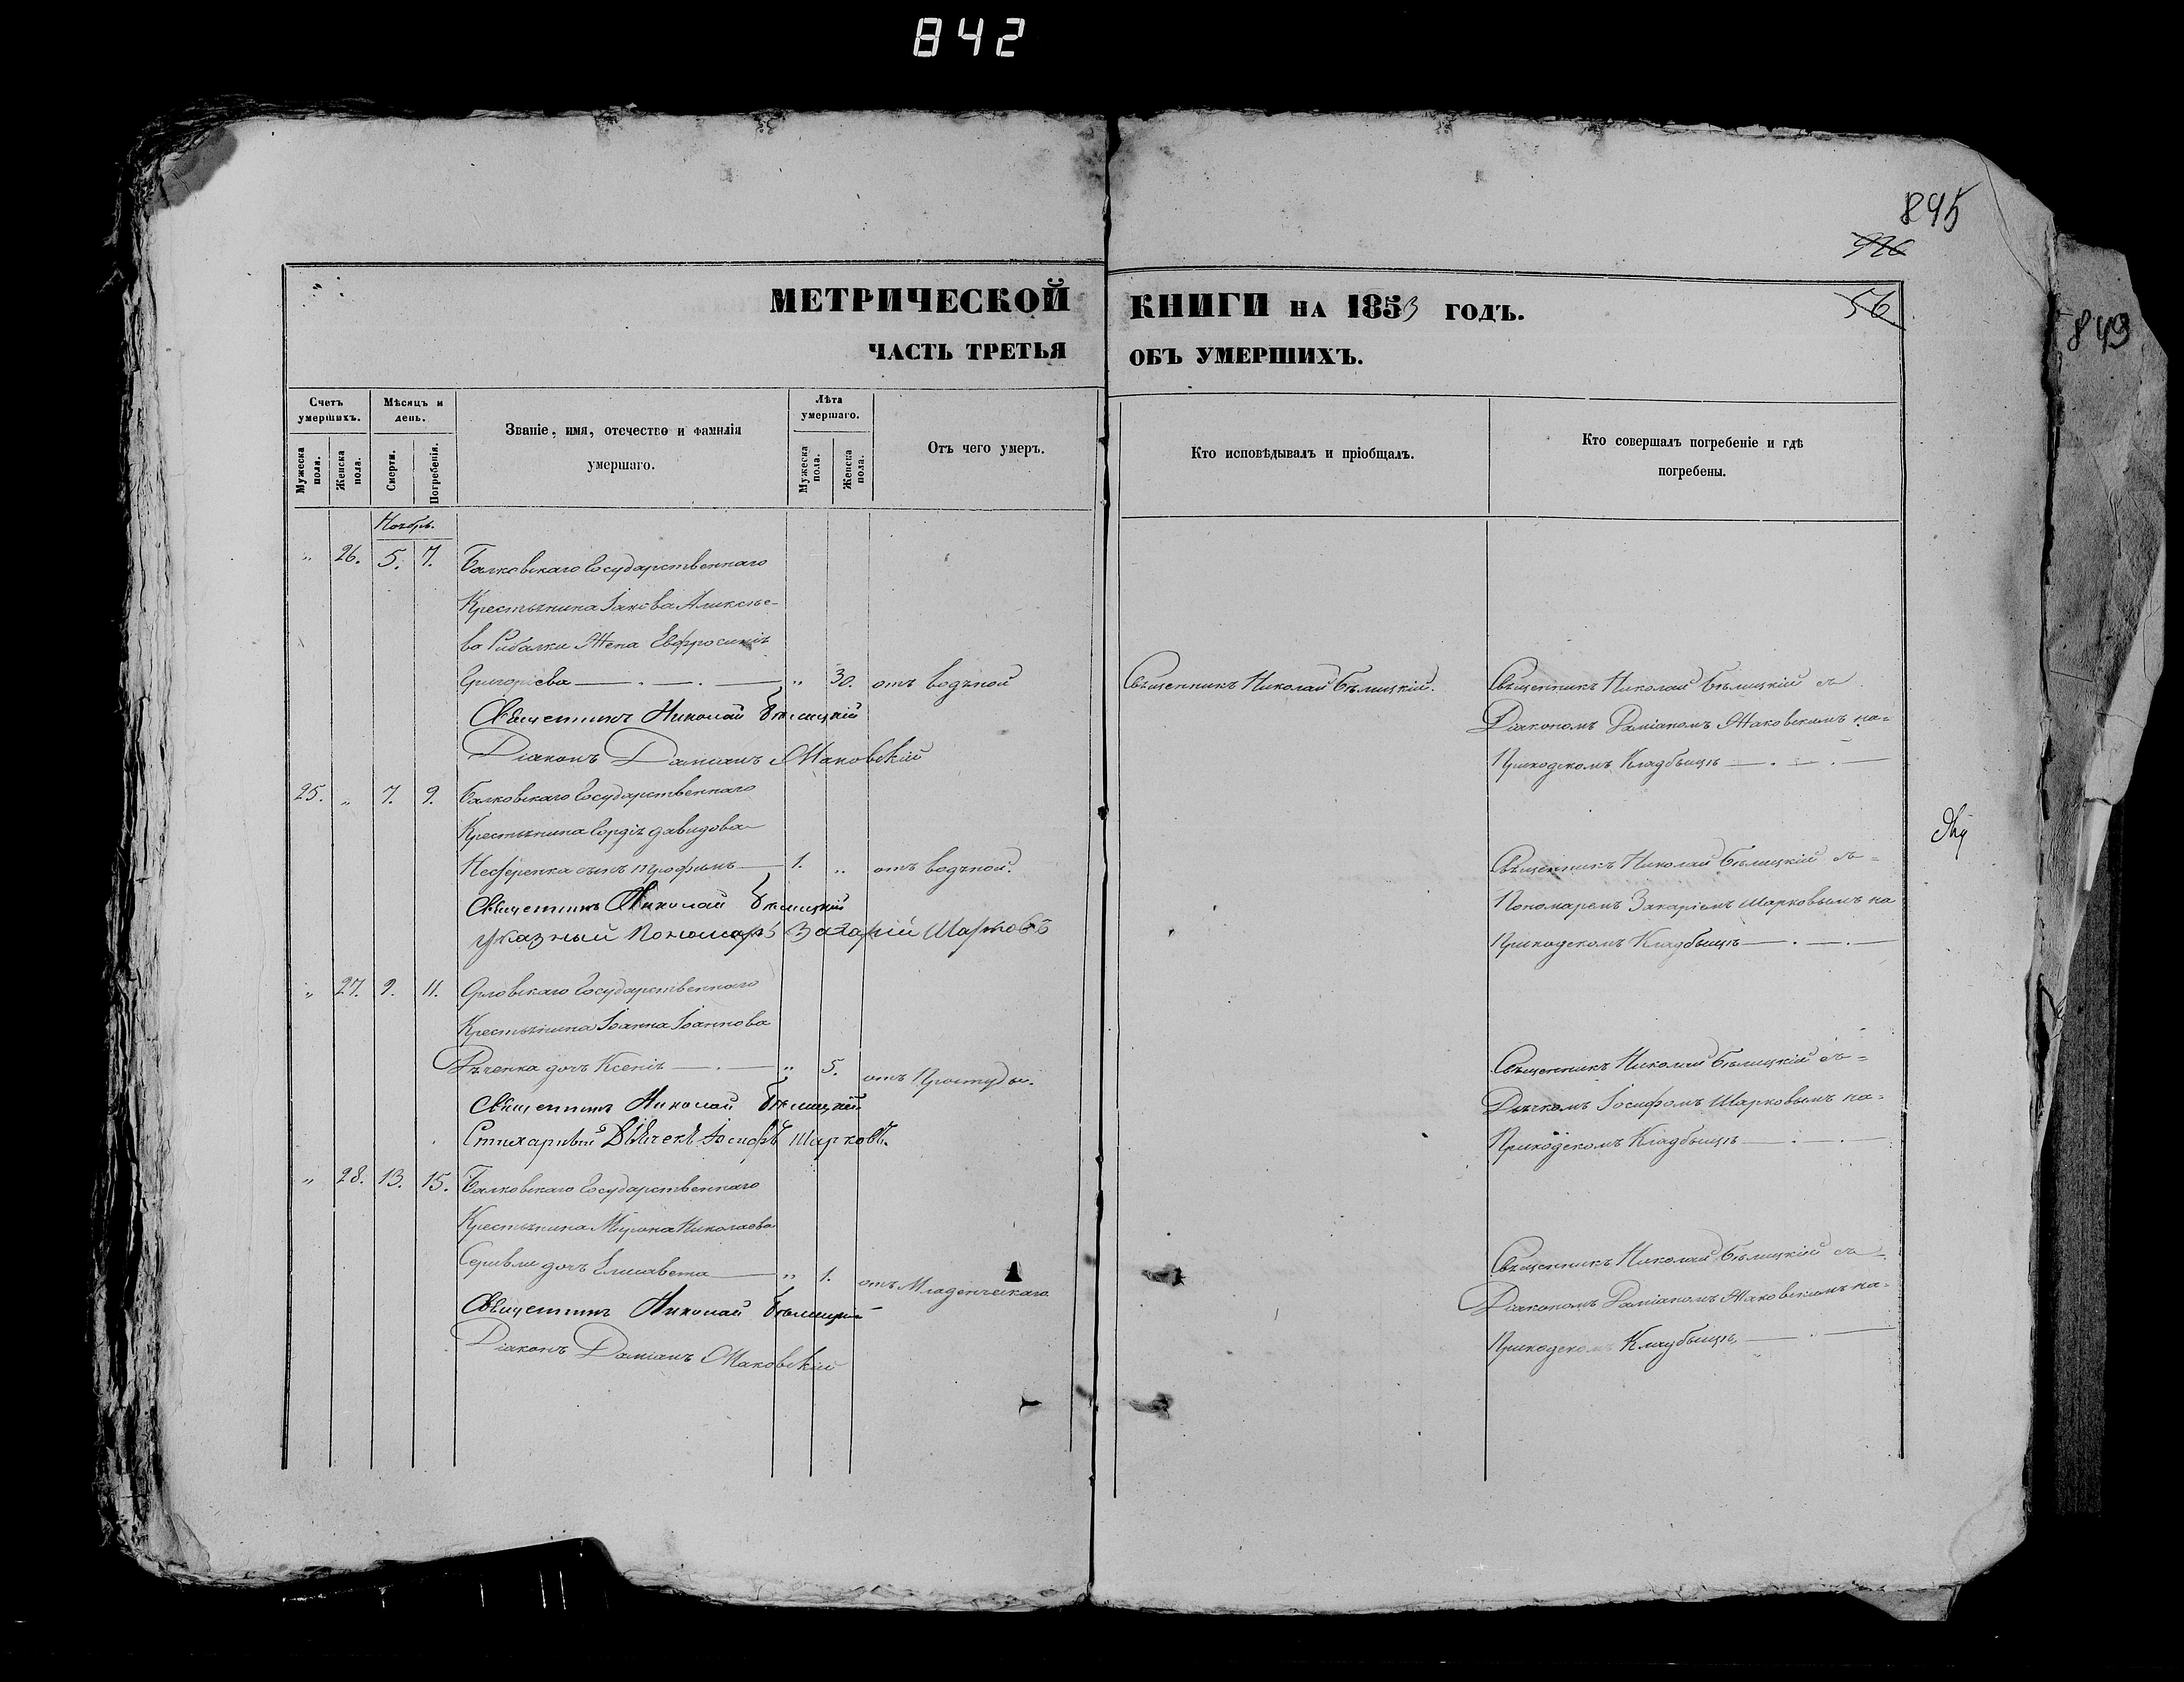 842
845
926
56
849
МЕТРИЧЕСКОЙ КНИГИ НА 1853 ГОДЪ.
ЧАСТЬ ТРЕТЬЯ ОБЪ УМЕРШИХЪ.
Счетъ умершихъ.
Мужеска пола.
Женска пола.
Мѣсяцъ и день.
Смерти.
Погребенія.
Званіе, имя, отечество и фамилія
умершаго.
Лѣта умершаго.
Мужеска пола.
Женска пола.
Отъ чего умеръ.
Кто исповѣдывалъ и пріобщалъ.
Кто совершалъ погребеніе и гдѣ
погребены.
Ноябрь.
" 26. 5. 7. Балковскаго Государственнаго
Крестьянина Іакова Аликсѣе-
ва Рибалки Жена Евфросинія
Григоріева " 30. отъ водяной Священникъ Николай Бѣлицкій. Священникъ Николай Бѣлицкій съ
Священникъ Николай Бѣлицкій Діакономъ Даміаномъ Маковскимъ на-
Діаконъ Даміанъ Маковскій Приходскомъ Кладбыщѣ
25. " 7. 9. Балковскаго Государственнаго
Крестьянина Сергія Давидова
Неференка сынъ Трофимъ 1. " отъ водяной. Священникъ Николай Бѣлицкій съ-
Священникъ Николай Бѣлицкій Пономаремъ Захаріемъ Шарковымъ на
Указный Пономарь Захарій Шарковъ Приходскомъ Кладбыщѣ
" 27. 9. 11. Орловскаго Государственнаго
Крестьянина Іоанна Іоаннова
Дяченка дочь Ксенія " 5. отъ Простуды. Священникъ Николай Бѣлицкій съ-
Священникъ Николай Бѣлицкій Дячкомъ Іосифомъ Шарковымъ на-
Стихарный Дьячекъ Іосифъ Шарковъ. Приходскомъ Кладбыщѣ
" 28. 13. 15. Балковскаго Государственнаго
Крестьянина Мирона Николаева
дочь Елисавета " 1. отъ Младенческаго Священникъ Николай Бѣлицкій съ-
Священникъ Николай Бѣлицкій Діакономъ Даміаномъ Маковскимъ на-
Діаконъ Даміанъ Маковскій Приходскомъ Кладбыщѣ